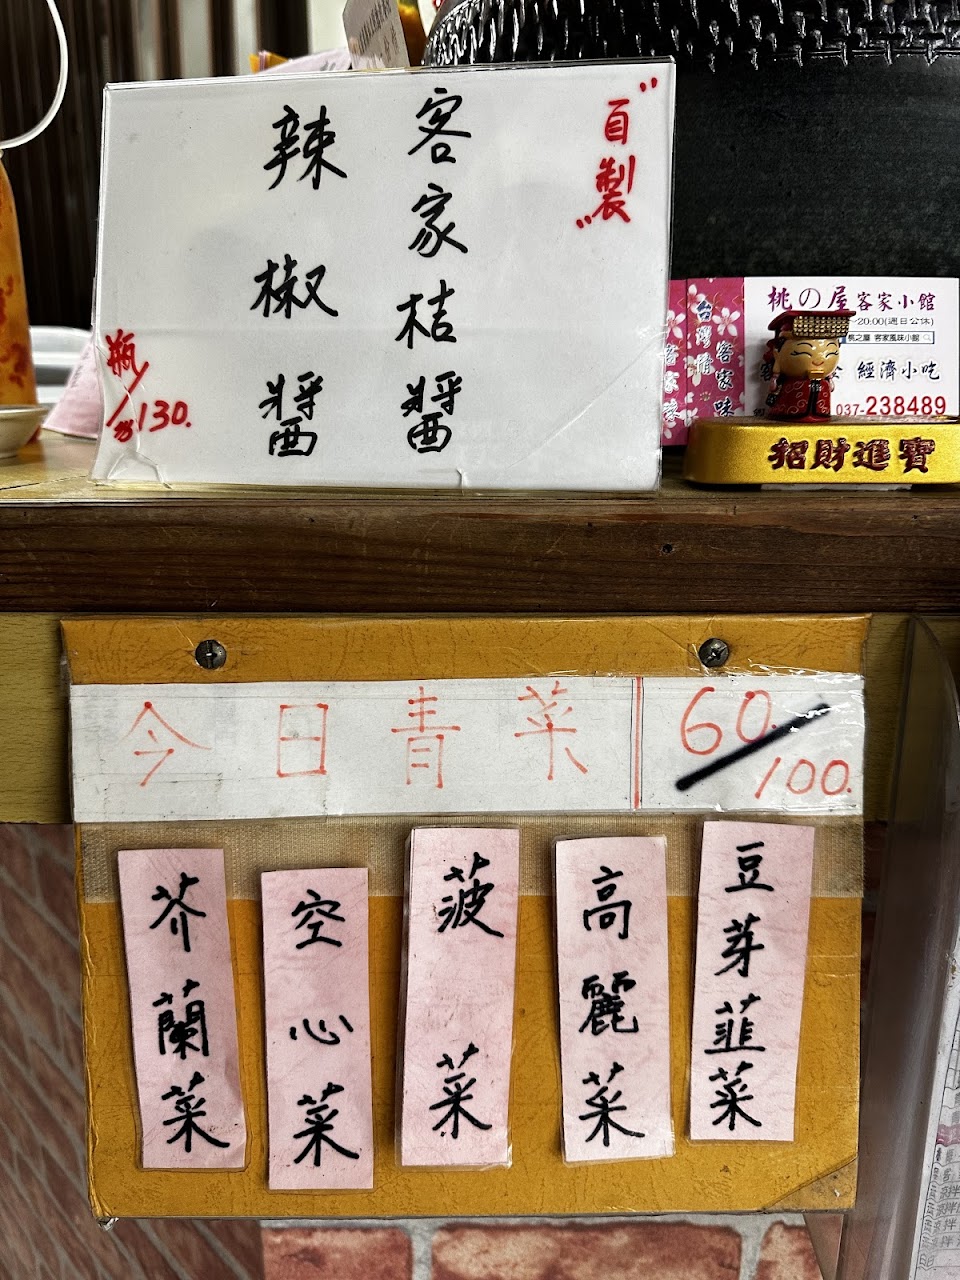 "自製"
客家桔醬
辣椒醬
瓶/130.
桃の屋客家小館
-20:00(週日公休)
客家風味小館
經濟小吃
037-238489
台灣客家味
招財進寶
今日青菜
60
/100.
豆芽韮菜
高麗菜
菠菜
空心菜
芥蘭菜